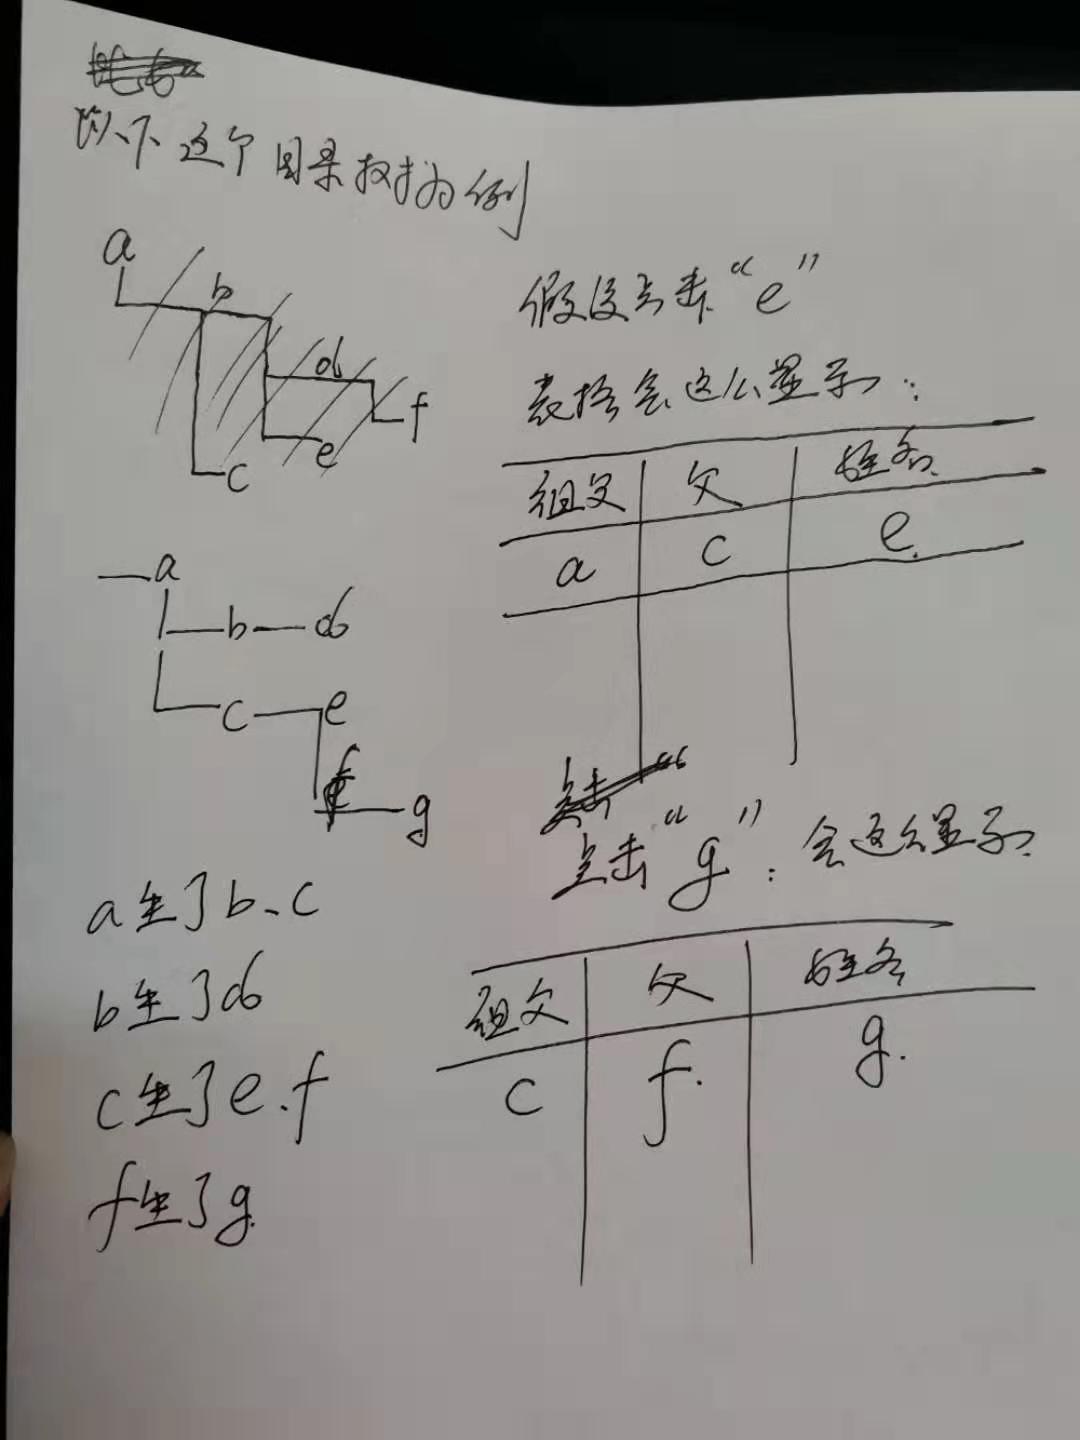 以下这个因果树为例
a
b
d
f
e
c
a
b d
c e
f g
a生了b、c
b生了d
c生了e、f
f生了g
假设点击“e”
表格会这么显示：
祖父 父 姓名
a c e
点击“
点击“g”：会这么显示
祖父 父 姓名
c f g